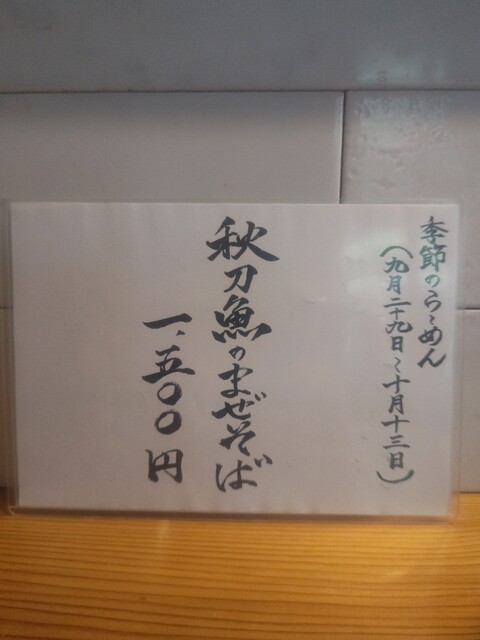 季節のらーめん
（九月二十九日～十月十三日）
秋刀魚のまぜそば
一、五〇〇円